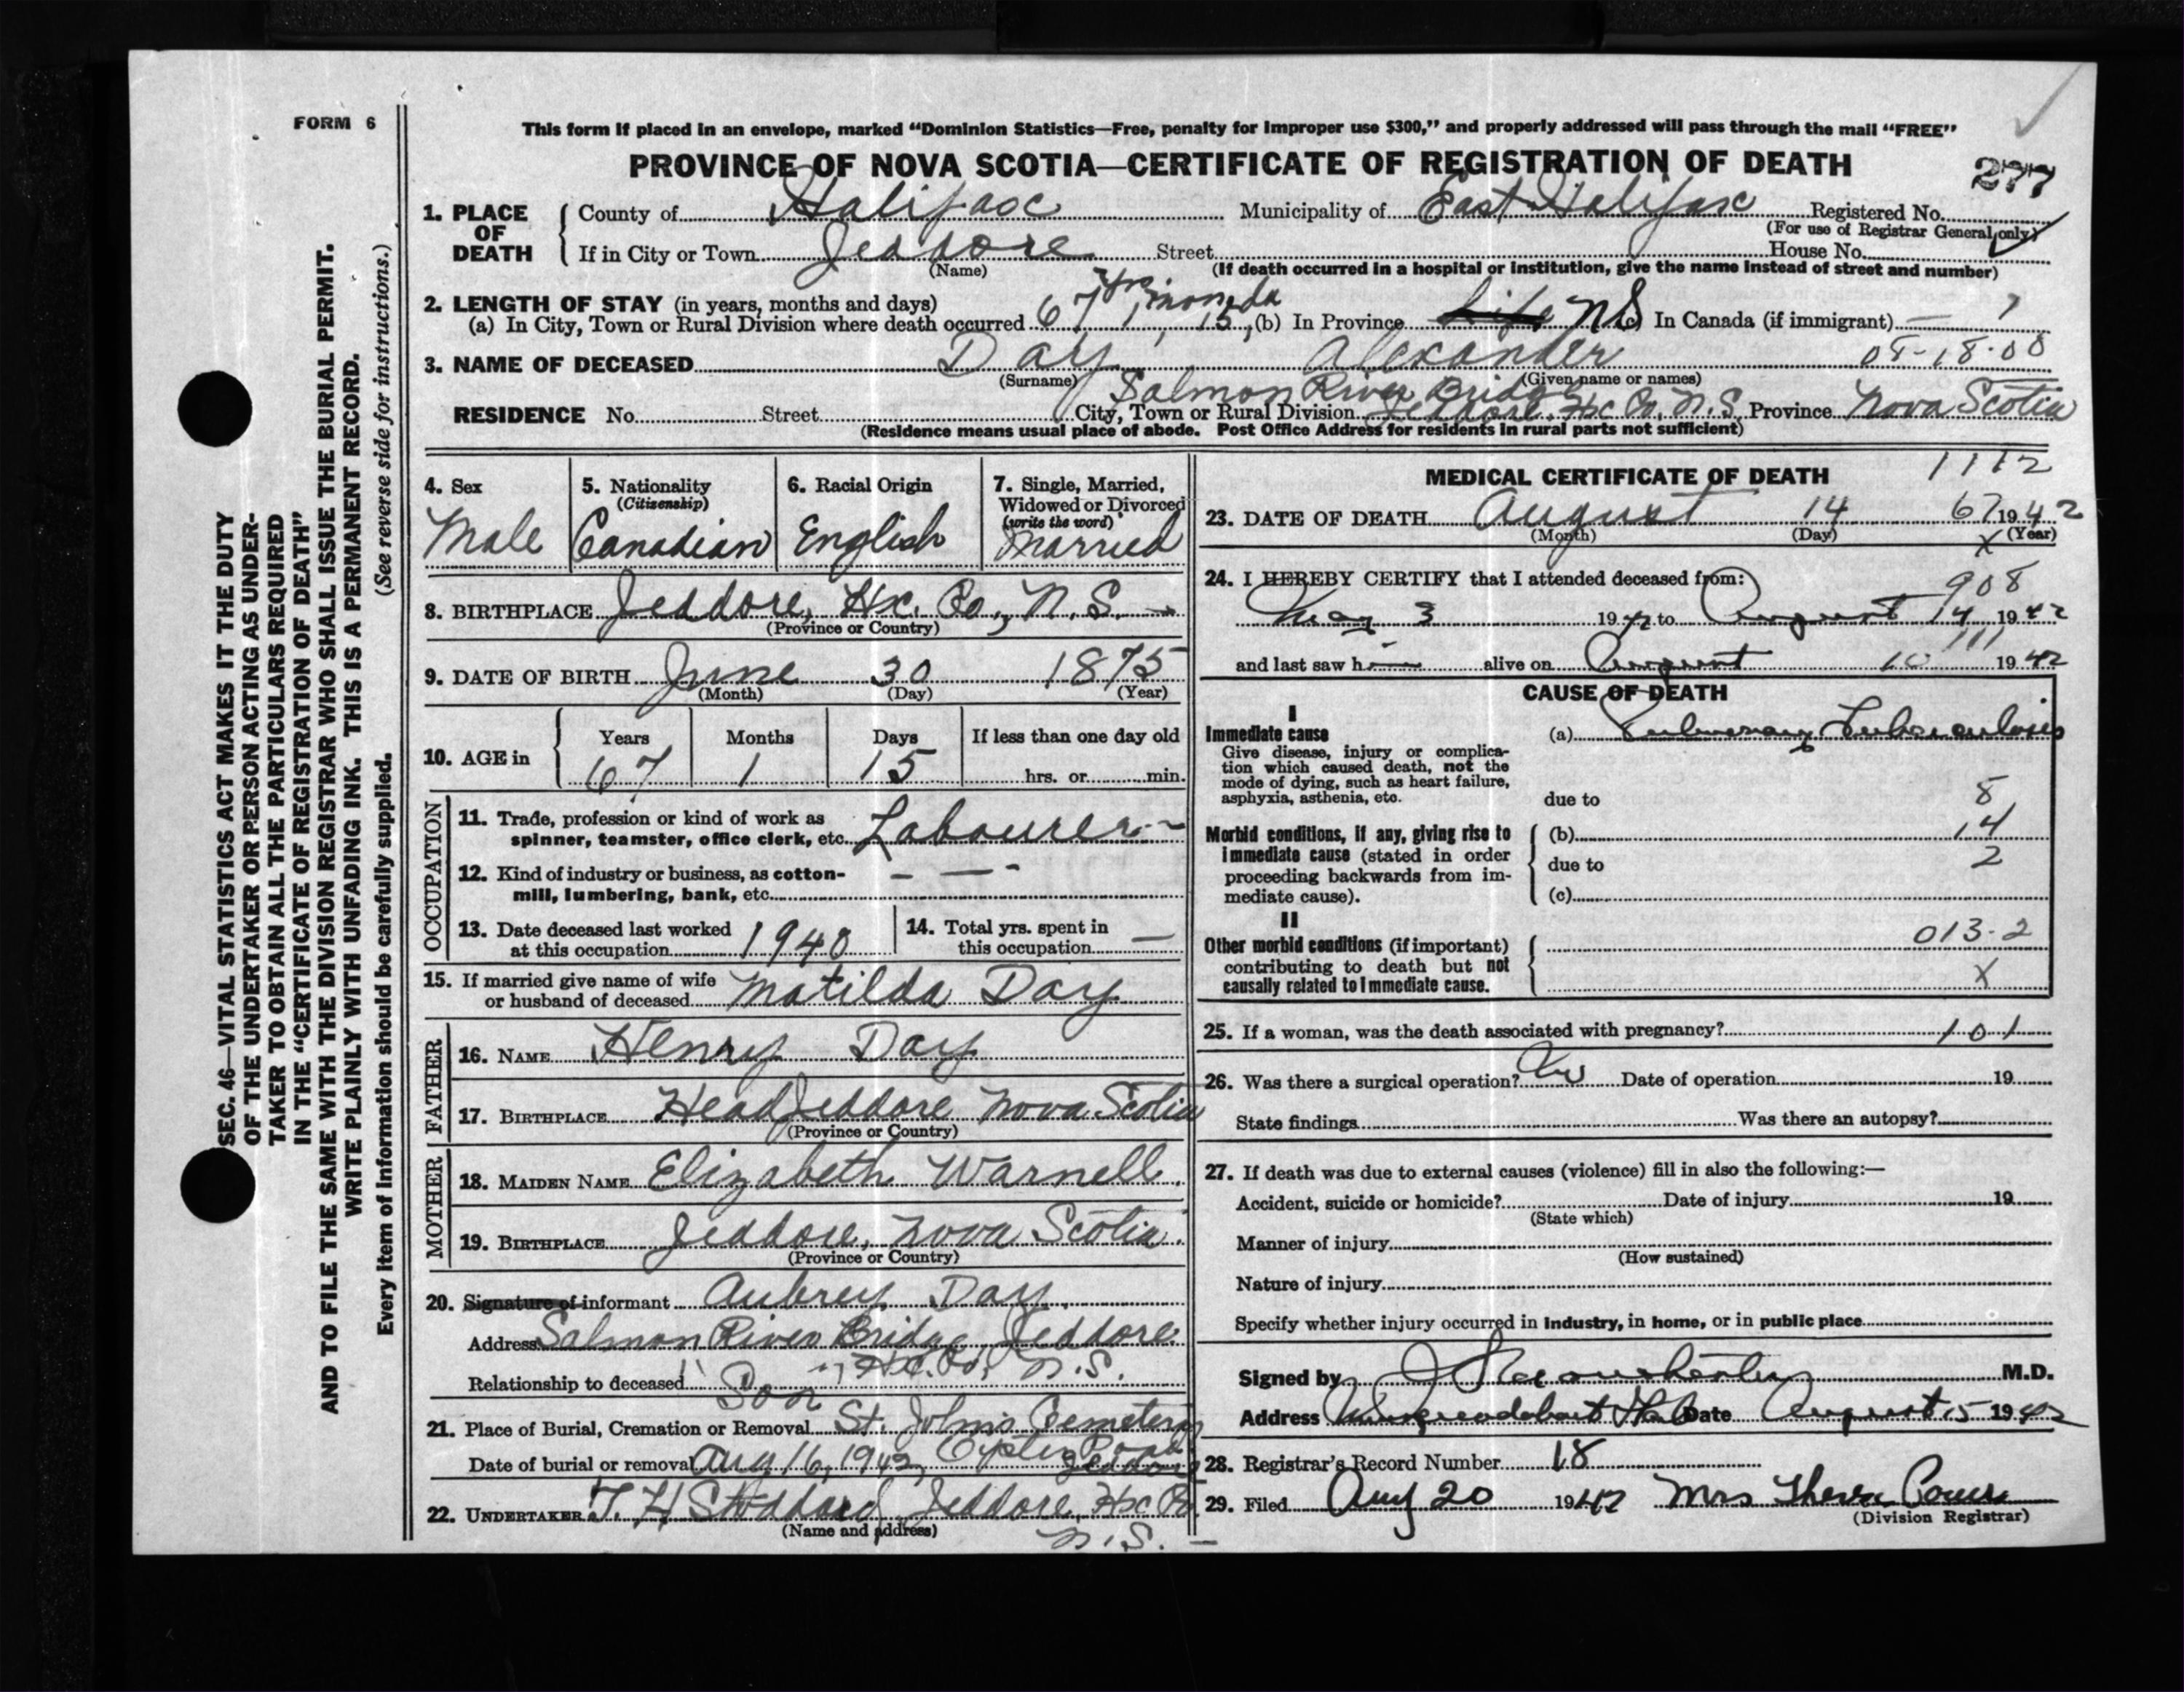 FORM 6
This form if placed in an envelope, marked “Dominion Statistics—Free, penalty for improper use $300,” and properly addressed will pass through the mail “FREE”
PROVINCE OF NOVA SCOTIA—CERTIFICATE OF REGISTRATION OF DEATH
277
1. PLACE OF DEATH
County of Halifax Municipality of East Halifax Registered No.
(For use of Registrar General only)
If in City or Town Jeddore Street House No.
(Name) (If death occurred in a hospital or institution, give the name instead of street and number)
2. LENGTH OF STAY (in years, months and days)
(a) In City, Town or Rural Division where death occurred 67 yrs, 1 mon, 15 da (b) In Province Life NS (c) In Canada (if immigrant) —
3. NAME OF DECEASED Day Alexander 08-18-00
(Surname) (Given name or names)
Salmon River Bridge
RESIDENCE No. Street City, Town or Rural Division Jeddore, Hx Co, N.S. Province Nova Scotia
(Residence means usual place of abode. Post Office Address for residents in rural parts not sufficient)
4. Sex
Male
5. Nationality
(Citizenship)
Canadian
6. Racial Origin
English
7. Single, Married, Widowed or Divorced
(write the word)
Married
8. BIRTHPLACE Jeddore, Hx. Co., N.S.
(Province or Country)
9. DATE OF BIRTH June 30 1875
(Month) (Day) (Year)
10. AGE in Years Months Days If less than one day old
67 1 15 hrs. or min.
OCCUPATION
11. Trade, profession or kind of work as
spinner, teamster, office clerk, etc. Labourer
12. Kind of industry or business, as cotton-
mill, lumbering, bank, etc. — — -
13. Date deceased last worked
at this occupation 1940
14. Total yrs. spent in
this occupation —
15. If married give name of wife
or husband of deceased Matilda Day
FATHER
16. NAME Henry Day
17. BIRTHPLACE Head Jeddore Nova Scotia
(Province or Country)
MOTHER
18. MAIDEN NAME Elizabeth Warnell
19. BIRTHPLACE Jeddore, Nova Scotia.
(Province or Country)
20. Signature of informant Aubrey Day.
Address Salmon River Bridge Jeddore
Hx. Co., N.S.
Relationship to deceased Son
21. Place of Burial, Cremation or Removal St. John's Cemetery
Oyster Pond
Date of burial or removal Aug 16, 1942, Jeddore
22. UNDERTAKER T. H Stoddard Jeddore, Hx Co.
(Name and address)
N.S. —
MEDICAL CERTIFICATE OF DEATH
1112
23. DATE OF DEATH August 14 67 1942
(Month) (Day) (Year)
X
24. I HEREBY CERTIFY that I attended deceased from:
908
May 3 1942 to August 14 1942
111
and last saw him alive on August 10 1942
CAUSE OF DEATH
I
Immediate cause
Give disease, injury or complica-
tion which caused death, not the
mode of dying, such as heart failure,
asphyxia, asthenia, etc.
(a) Pulmonary Tuberculosis
due to 8
Morbid conditions, if any, giving rise to
immediate cause (stated in order
proceeding backwards from im-
mediate cause).
(b) 14
due to 2
(c)
II
Other morbid conditions (if important)
contributing to death but not
causally related to immediate cause.
013-2
X
25. If a woman, was the death associated with pregnancy? 101
26. Was there a surgical operation? No Date of operation 19
State findings Was there an autopsy?
27. If death was due to external causes (violence) fill in also the following:—
Accident, suicide or homicide? Date of injury 19
(State which)
Manner of injury
(How sustained)
Nature of injury
Specify whether injury occurred in industry, in home, or in public place
Signed by M.D.
Address Date August 15 1942
28. Registrar's Record Number 18
29. Filed Aug 20 1942 Mrs
(Division Registrar)
SEC. 46—VITAL STATISTICS ACT MAKES IT THE DUTY
OF THE UNDERTAKER OR PERSON ACTING AS UNDER-
TAKER TO OBTAIN ALL THE PARTICULARS REQUIRED
IN THE “CERTIFICATE OF REGISTRATION OF DEATH”
AND TO FILE THE SAME WITH THE DIVISION REGISTRAR WHO SHALL ISSUE THE BURIAL PERMIT.
WRITE PLAINLY WITH UNFADING INK. THIS IS A PERMANENT RECORD.
Every item of information should be carefully supplied. (See reverse side for instructions.)